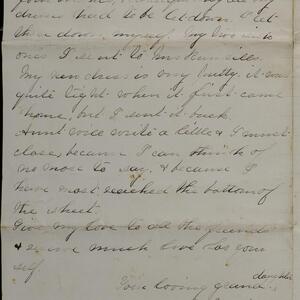 dresses had to be let down. I let
them down, myself. My two white
ones I sent to Mrs
My new dress is very pretty. it was
quite tight when it first came
home, but I sent it back.
Aunt will write a little & I must
close, because I can think of
no more to say, & because I
have most reached the bottom of
the sheet.
Give my love to all the friends
& receive much love for your
self.
Your loving grand-
daughter